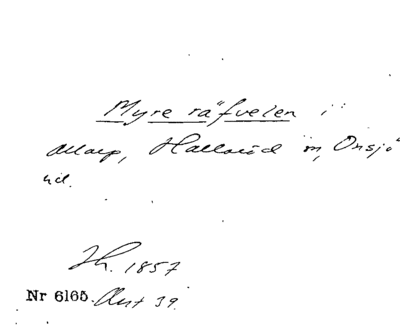 Myre räfvelen i
Allarp, Hallaröd sn, Onsjö
hd.
Th. 1857
Nr 6165. Ant 39.